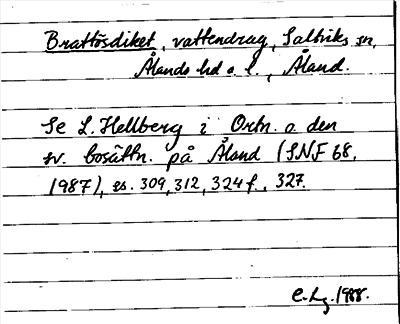 Brattösdiket, vattendrag, Saltviks sn,
Ålands hd o. l., Åland.
Se L. Hellberg i Ortn. o. den
sv. bosättn. på Åland (SNF 68,
1987), ss. 309, 312, 324 f., 327.
C. Lg. 1988.